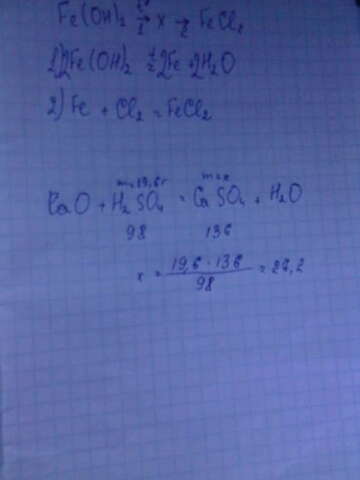 Fe(OH)₂ →¹ x →² FeCl₂
1) 2Fe(OH)₂ = 2Fe + 2H₂O
2) Fe + Cl₂ = FeCl₂
m=19,6г m=x
CaO + H₂SO₄ = CaSO₄ + H₂O
98 136
x = 19,6 · 136 / 98 = 27,2